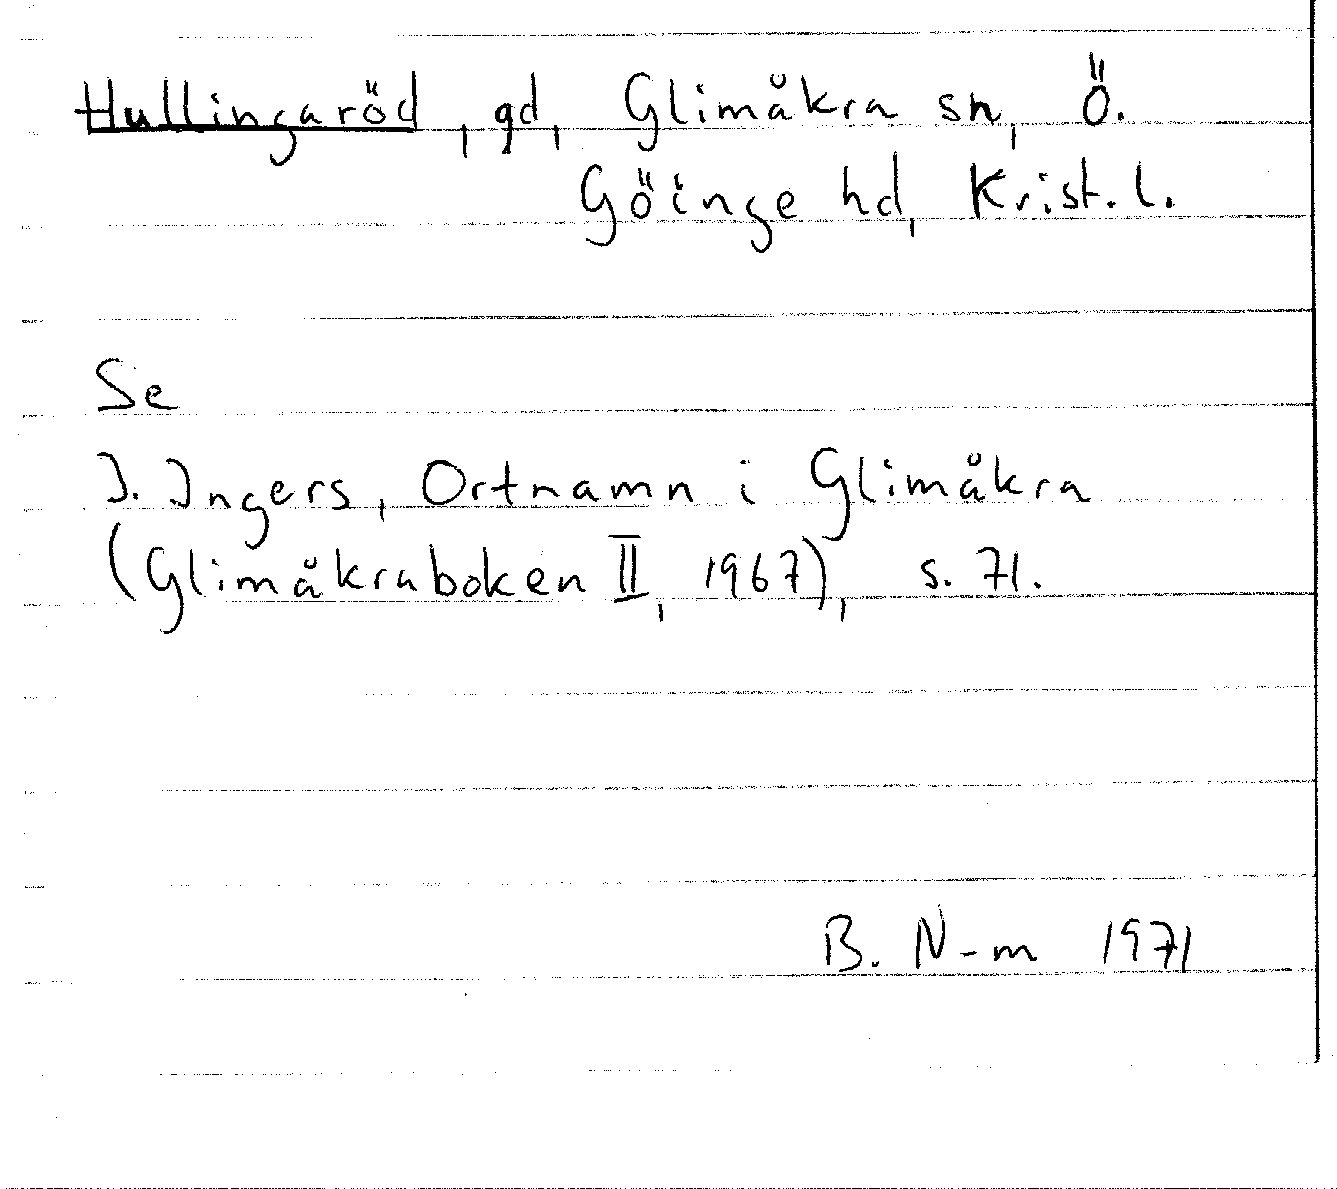 Hullingaröd, gd, Glimåkra sn, Ö.
Göinge hd, Krist. l.
Se
I. Ingers, Ortnamn i Glimåkra
(Glimåkraboken II, 1967), s. 71.
B. N-m 1971